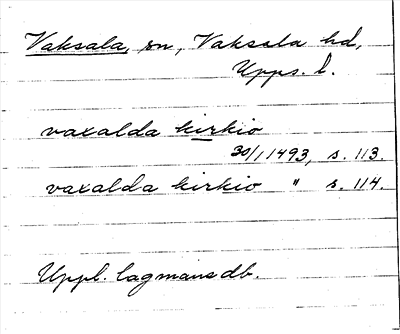 Vaksala, sn, Vaksala hd,
Upps. l.
vaxalda kirkio
30/1 1493, s. 113.
vaxalda kirkio " s. 114.
Uppl. lagmansdb.